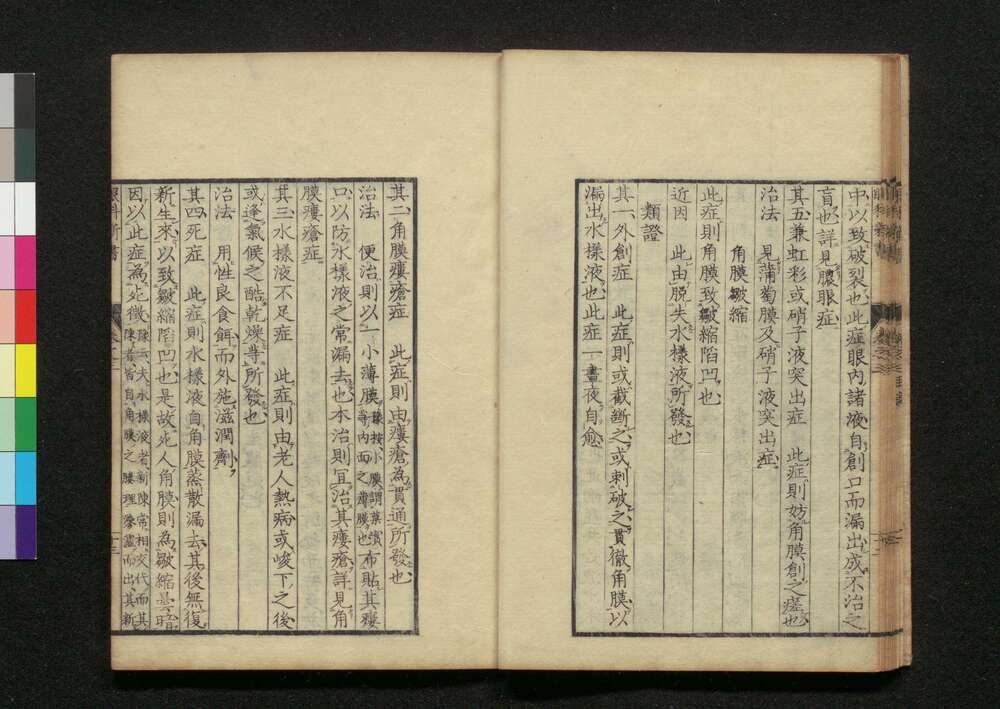 中以致破裂也此症眼內諸液自創口而漏出成不治之
盲也詳見膿眼症
其五兼虹彩或硝子液突出症　此症則妨角膜創之瘥也
治法　見蒲萄膜及硝子液突出症
角膜皺縮
此症則角膜致皺縮陷凹也
近因　此由脫失水樣液所發也
類證
其一外創症　此症則或截斷之或刺破之貫徹角膜以
漏出水樣液也此症一晝夜自愈
其二角膜瘻瘡症　此症則由瘻瘡為貫通所發也
治法　便治則以一小薄膜
等內面之薄膜也
布貼其瘻
口以防水樣液之常漏去也本治則宜治其瘻瘡詳見角
膜瘻瘡症
其三水樣液不足症　此症則由老人熱病或峻下之後
或逢氣候之酷乾燥等所發也
治法　用性良食餌而外施滋潤劑
其四死症　此症則水樣液自角膜蒸散漏去其後無復
新生來以致皺縮陷凹也是故死人角膜則為皺縮曇暗
因以此症為死徵
夫水樣液者新陳常相交代而其
陳者皆自角膜之腠理滲盡而出其新
眼科新書